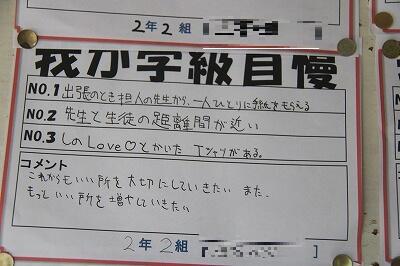 2年2組
我が学級自慢
NO.1 出張のとき担人の先生から、一人ひとりに手紙をもらえる
NO.2 先生と生徒の距離間が近い
NO.3 しのLove♡とかいた Tシャツがある。
コメント
これからもいい所を大切にしていきたい また、
もっといい所を増やしていきたい
2年2組 ]